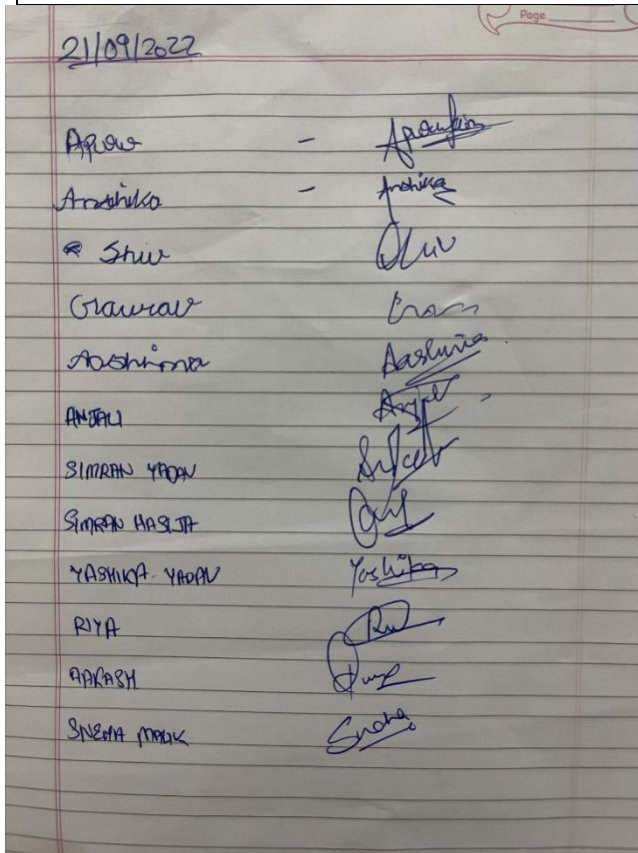 Page
21/09/2022
Apurv -
Anshika - Anshika
Shiv Shiv
Gaurav
Aashima Aashima
ANJALI Anjali
SIMRAN YADAV
SIMRAN HASIJA
YASHIKA YADAV Yashika
RIYA
AAKASH
SNEHA MALIK Sneha